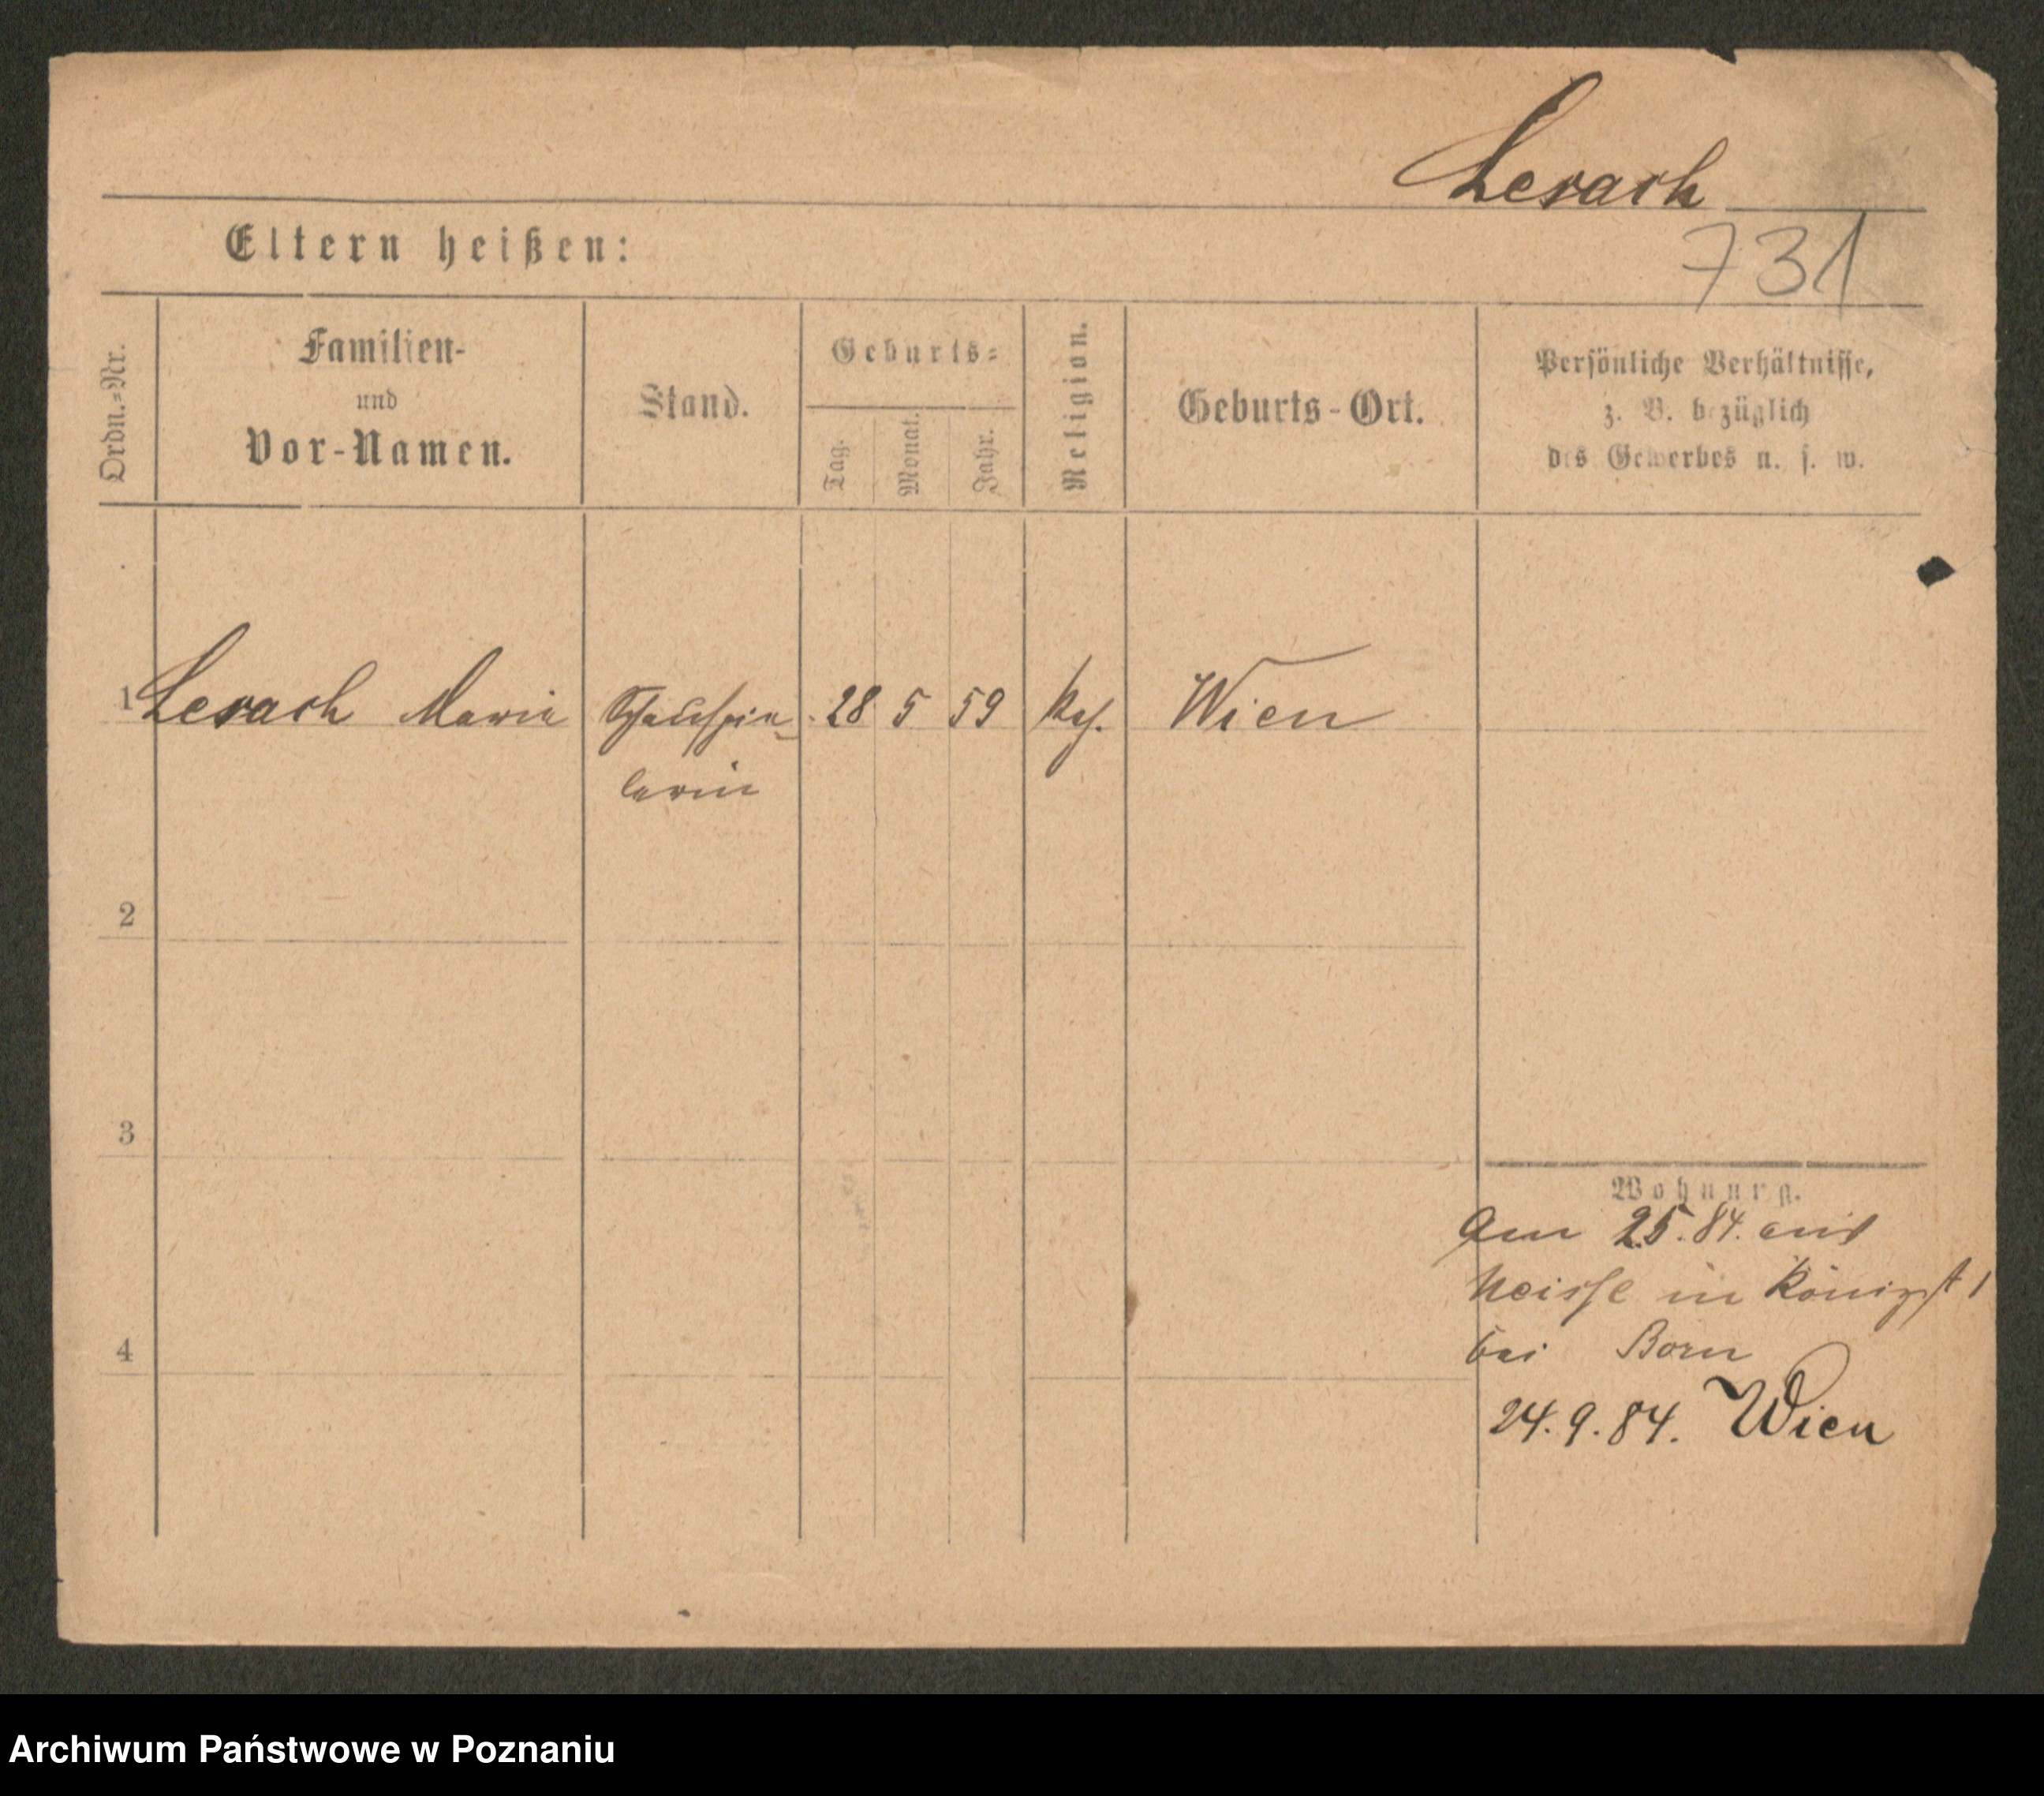 Lesach
731
Eltern heißen:
Ordn.-Nr.
Familien-
und
Vor-Namen.
Stand.
Geburts-
Tag.
Monat.
Jahr.
Religion.
Geburts-Ort.
Persönliche Verhältnisse,
z. B. bezüglich
des Gewerbes u. s. w.
1 Lesach Marie Schauspie- 28 5 59 Wien
lerin
2
3
4
Wohnung.
Am 25.84. aus
Neisse in Königst 1
bei Born
24.9.84. Wien
Archiwum Państwowe w Poznaniu